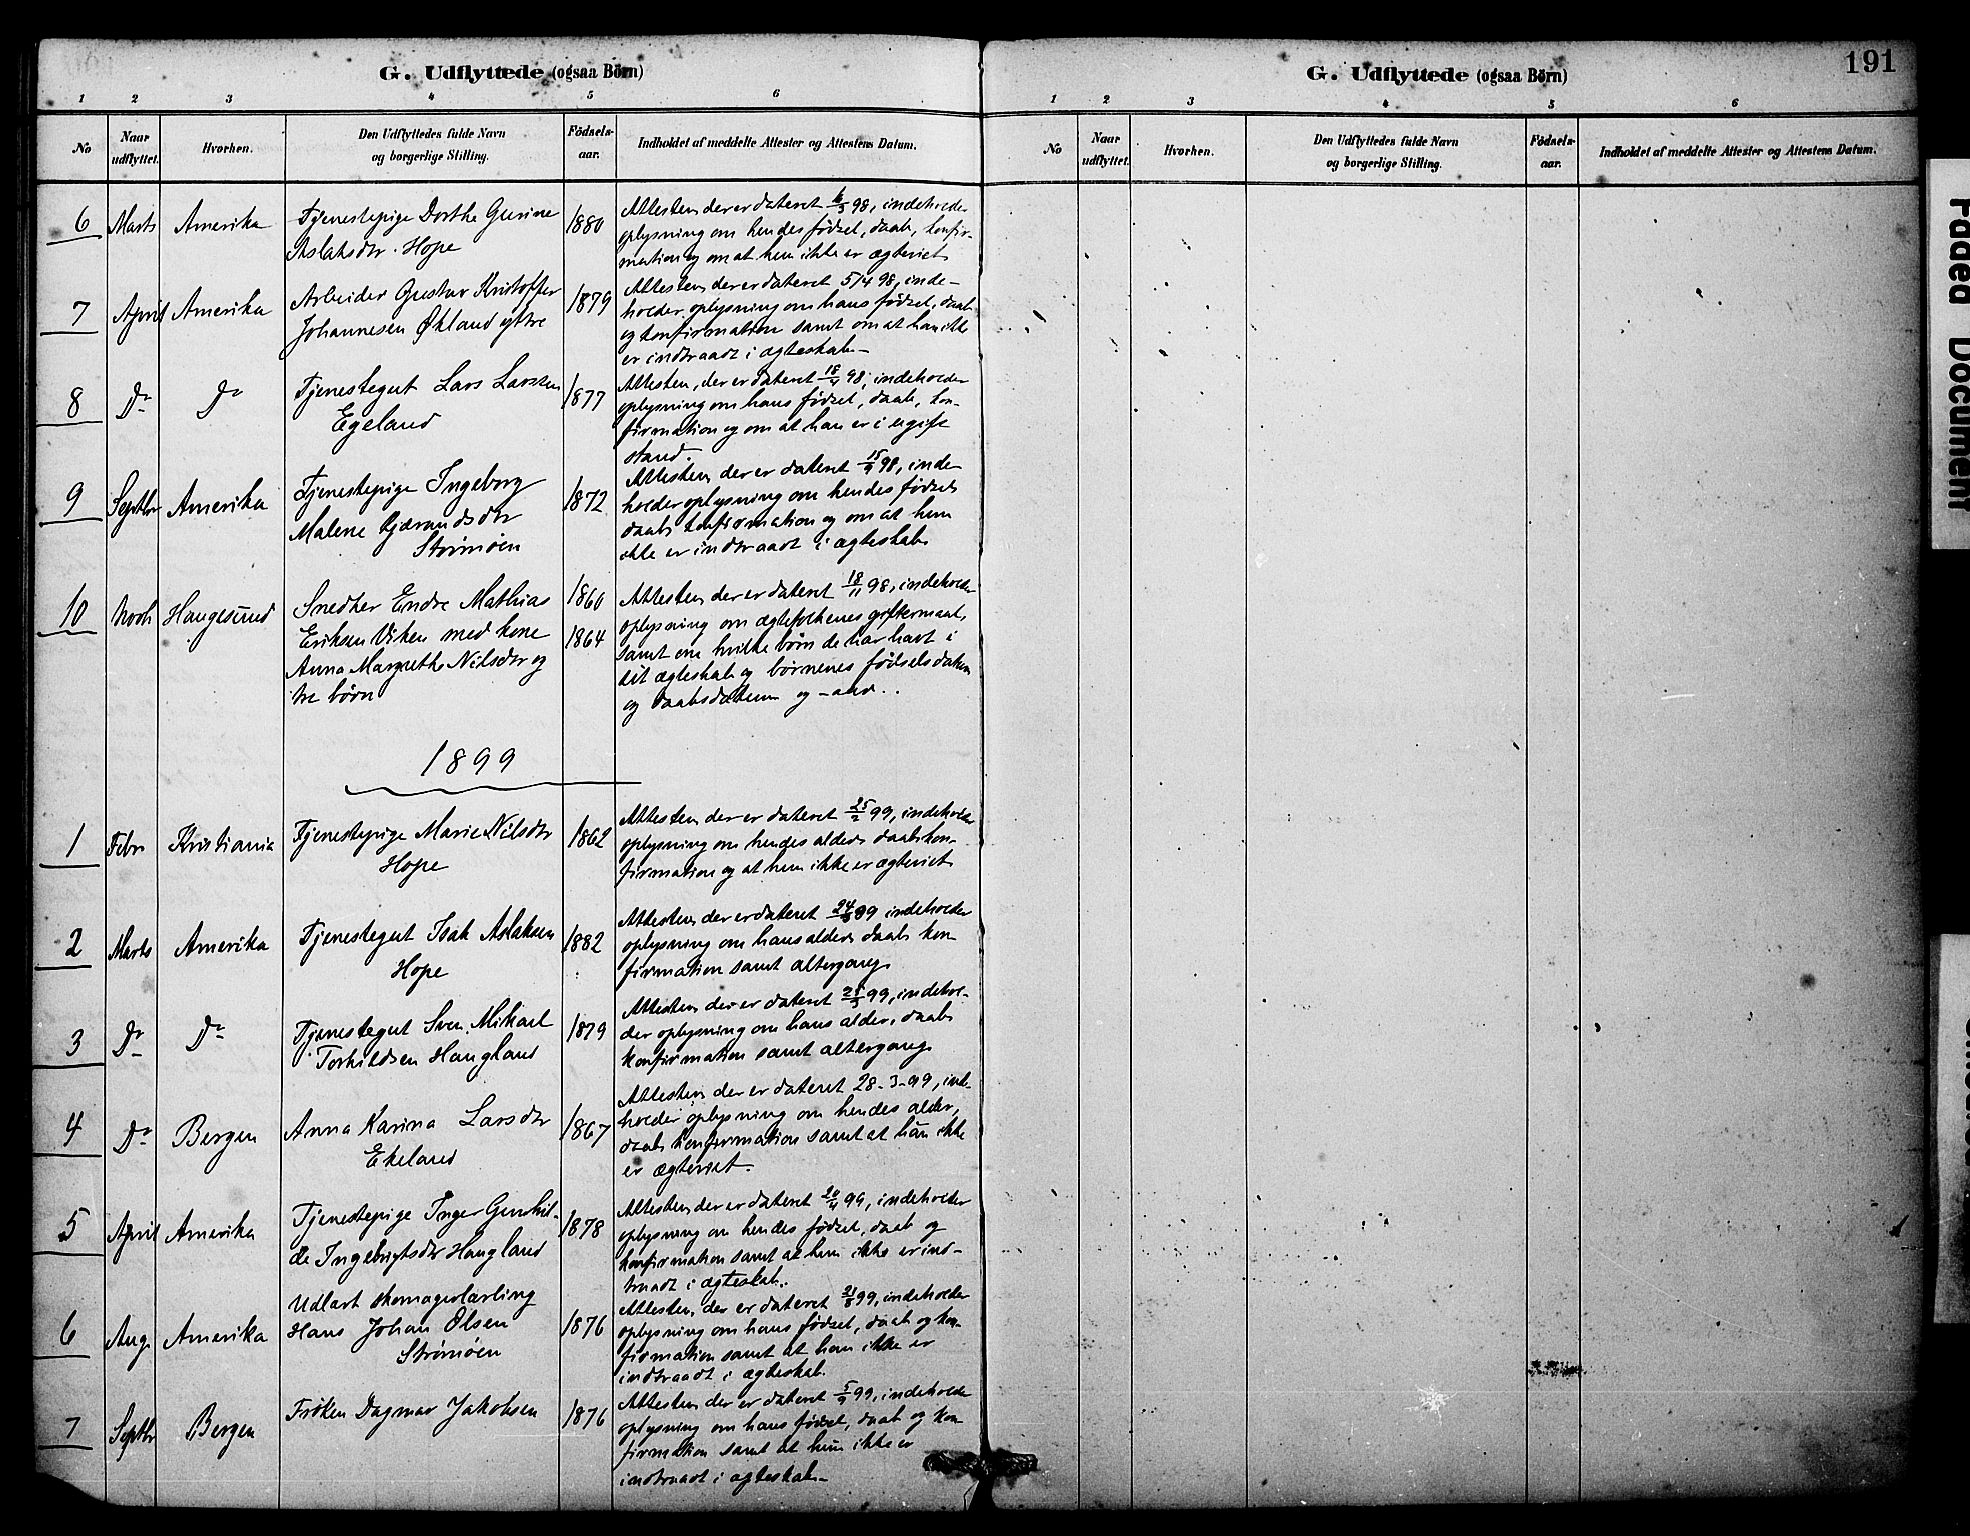 G. Udflyttede (ogsaa Börn)
1 2 3 4 5 6
No
Naar udflyttet.
Hvorhen.
Den Udflyttedes fulde Navn
og borgerlige Stilling.
Födsels-
aar.
Indholdet af meddelte Attester og Attestens Datum.
6 Marts Amerika Tjenestepige Dorthe Gurine 1880 Attesten der er dateret 6/3 98, indeholder
Aslaksdtr. Hope oplysning om hendes fødsel, daab, konfir-
mation og om at hun ikke er ægteviet
7 April Amerika Arbeider Gustav Kristoffer 1879 Attesten der er dateret 5/4 98, inde-
Johannesen Økland ytre holder oplysning om hans fødsel, daab
og konfirmation samt om at han ikke
er indtraadt i ægteskab-
8 Do Do Tjenestegut Lars Larsen 1877 Attesten, der er dateret 18/4 98, indeholder
Egeland oplysning om hans fødsel, daab, kon-
firmation og om at han er i ugift
stand.
9 Septbr Amerika Tjenestepige Ingeborg 1872 Attesten der er dateret 15/9 98, inde-
Malene Gjærandsdtr holder oplysning om hendes fødsel
Strømøen daab konfirmation og om at hun
ikke er indtraadt i ægteskab
10 Novb Haugesund Snedker Endre Mathias 1860 Attesten der er dateret 18/11 98, indeholder
Eriksen Viken med kone 1864 oplysning om ægtefolkenes giftermaal
Anna Margrethe Nilsdtr og samt om hvilke børn de har havt i
tre børn sit ægteskab og børnenes fødselsdatum
og daabsdatum og -aar.
1899
1 Febr Kristiania Tjenestepige Marie Nilsdtr 1862 Attesten der er dateret 25/2 99, indeholder
Hope oplysning om hendes alder daab kon-
firmation og at hun ikke er ægteviet
2 Marts Amerika Tjenestegut Isak Aslaksen 1882 Attesten der er dateret 24/3 99 indeholder
Hope oplysning om hans alder daab kon
firmation samt altergang
3 Do Do Tjenestegut Sven Mikael 1879 Attesten der er dateret 25/3 99, indehol-
Torkildsen Haugland der oplysning om hans alder, daab
konfirmation samt altergang
4 Do Bergen Anna Karina Larsdtr 1867 Attesten der er dateret 28-3-99, inde-
Ekeland holder oplysning om hendes alder,
daab konfirmation samt at hun ikke
er ægteviet.
5 April Amerika Tjenestepige Inger Gunhil- 1878 Attesten der er dateret 20/4 99, indeholder
de Ingebrigtsdtr Haugland oplysning om hendes fødsel, daab og
konfirmation samt at hun ikke er ind-
traadt i ægteskab.
6 Aug. Amerika Udlært skomagerlærling 1876 Attesten, der er dateret 21/8 99, indeholder
Hans Johan Olsen oplysning om hans fødsel, daab og kon-
Strømøen firmation samt at han ikke er
indtraadt i ægteskab.
7 Septbr Bergen Frøken Dagmar Jakobsen 1876 Attesten der er dateret 5/9 99, indeholder
oplysning om hans fødsel, daab og kon
firmation samt at hun ikke er
indtraadt i ægteskab-
G. Udflyttede (ogsaa Börn)
191
1 2 3 4 5 6
No
Naar udflyttet.
Hvorhen.
Den Udflyttedes fulde Navn
og borgerlige Stilling.
Födsels-
aar.
Indholdet af meddelte Attester og Attestens Datum.
Faded Document